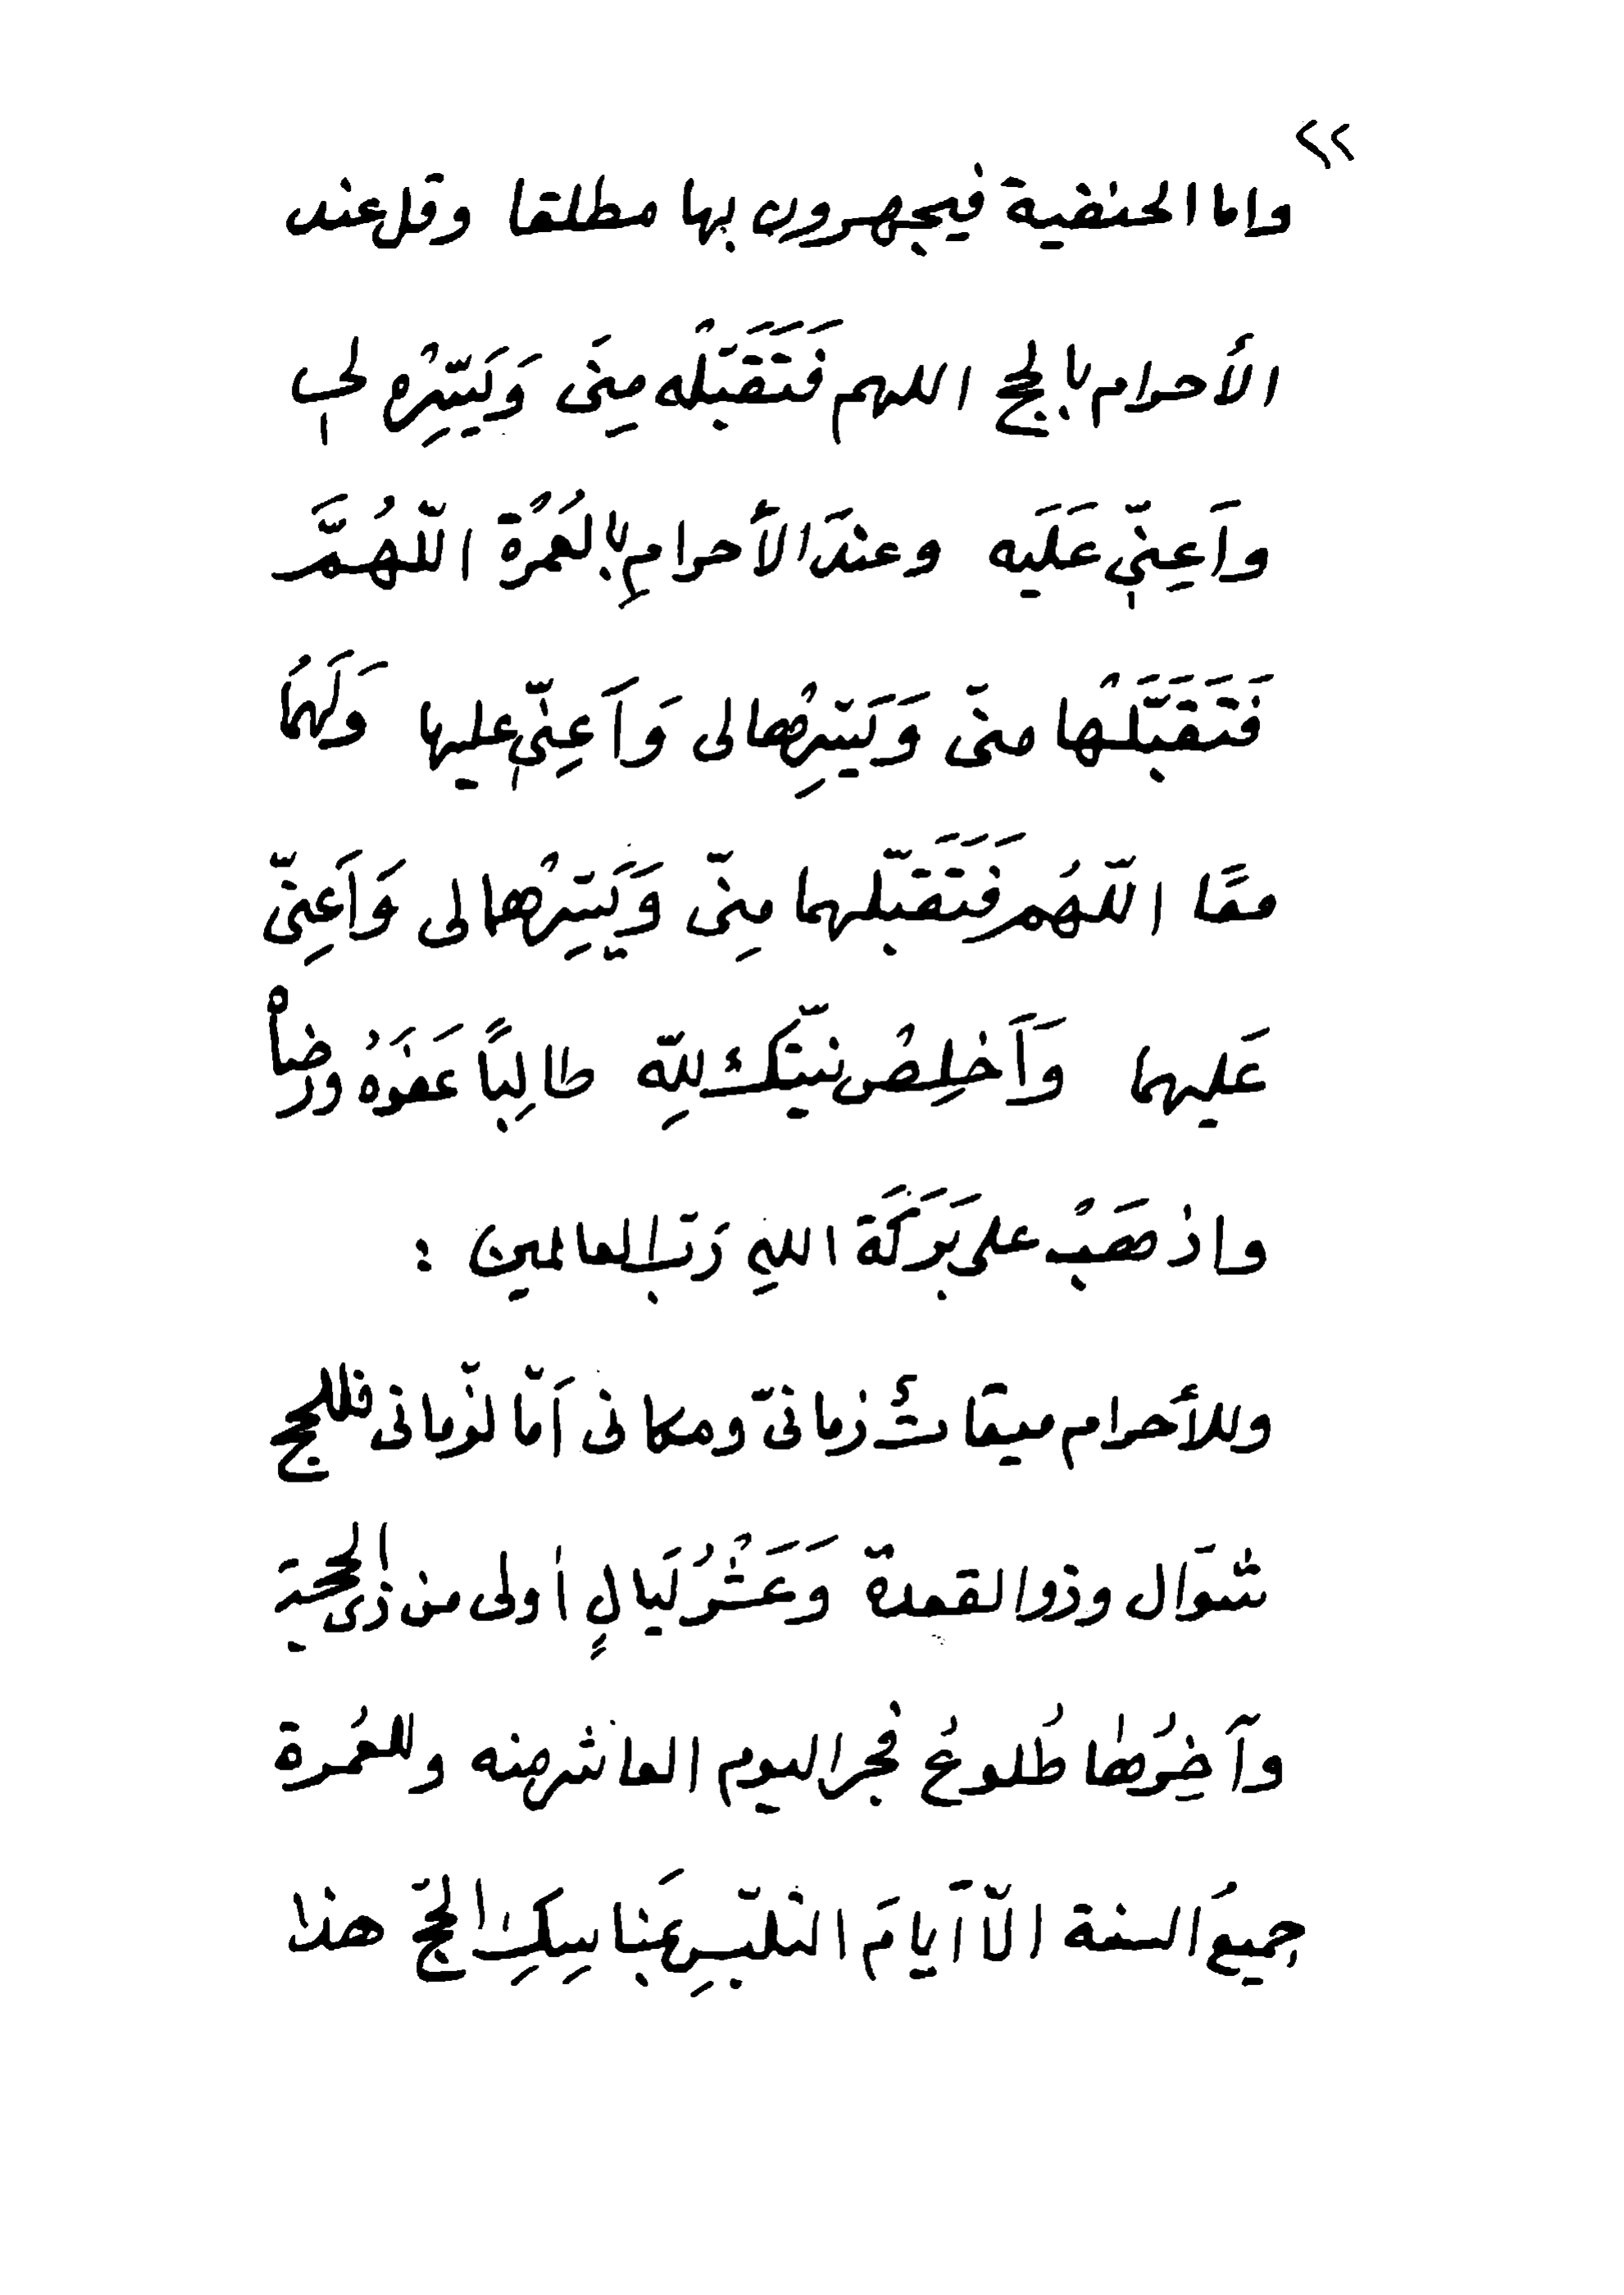 ٢٢
واما الحنفية فيجهرون بها مطلقا وقل عند
الأحرام بالحج اللهم فَتَقَبَّلْه مِنّى وَيَسِّرْه لى
وَاَعِنّى عَلَيه وعندَ الأحرامِ بالعُمْرَة اللّهُمَّ
فَتَقَبَّلْها منّى وَيَسِّرْها لى وَاَعِنّى عليها وَلَهُمَا
معًا اللّهُم فَتَقَبَّلْهما مِنّى وَيَسِّرْهما لى وَاَعِنّى
عَليهما وَاَخلِصْ نيّتك للهِ طالِبًا عَفوَهُ ورضاه
واذهَبْ على بَرَكَة اللهِ رَبّ العالمين :
وللأحرام ميقاتٌ زمانىّ ومكانى اَمّا الزّمانى فللحج
شوّال وذوالقعدة وَعَشْرُ لَيالٍ اُولى من ذى الحجة
وآخِرُها طُلوعُ فجر اليوم العاشر منه وللعُمرة
جميعَ السنة الاّ اَيامَ التلبّسِ بمَناسِكِ الحجّ هذا